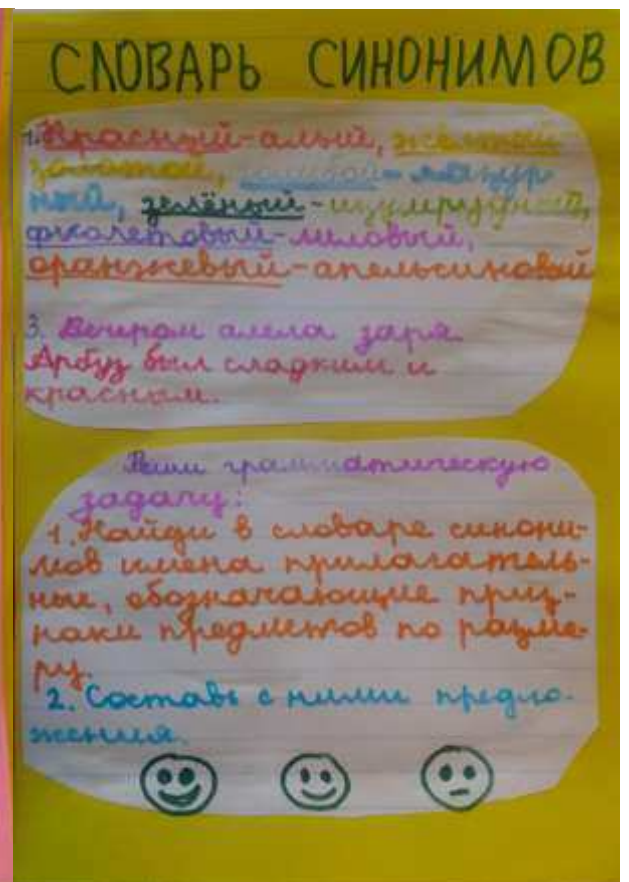 СЛОВАРЬ СИНОНИМОВ
1. Красный-алый, жёлтый-
золотой, голубой-лазур
ный, зелёный-изумрудный,
фиолетовый-лиловый,
оранжевый-апельсиновый
3. Вечером алела заря.
Арбуз был сладким и
красным.
Реши грамматическую
задачу:
1. Найди в словаре синони-
мов имена прилагатель-
ные, обозначающие приз-
наки предметов по разме-
ру.
2. Составь с ними предло-
жения.